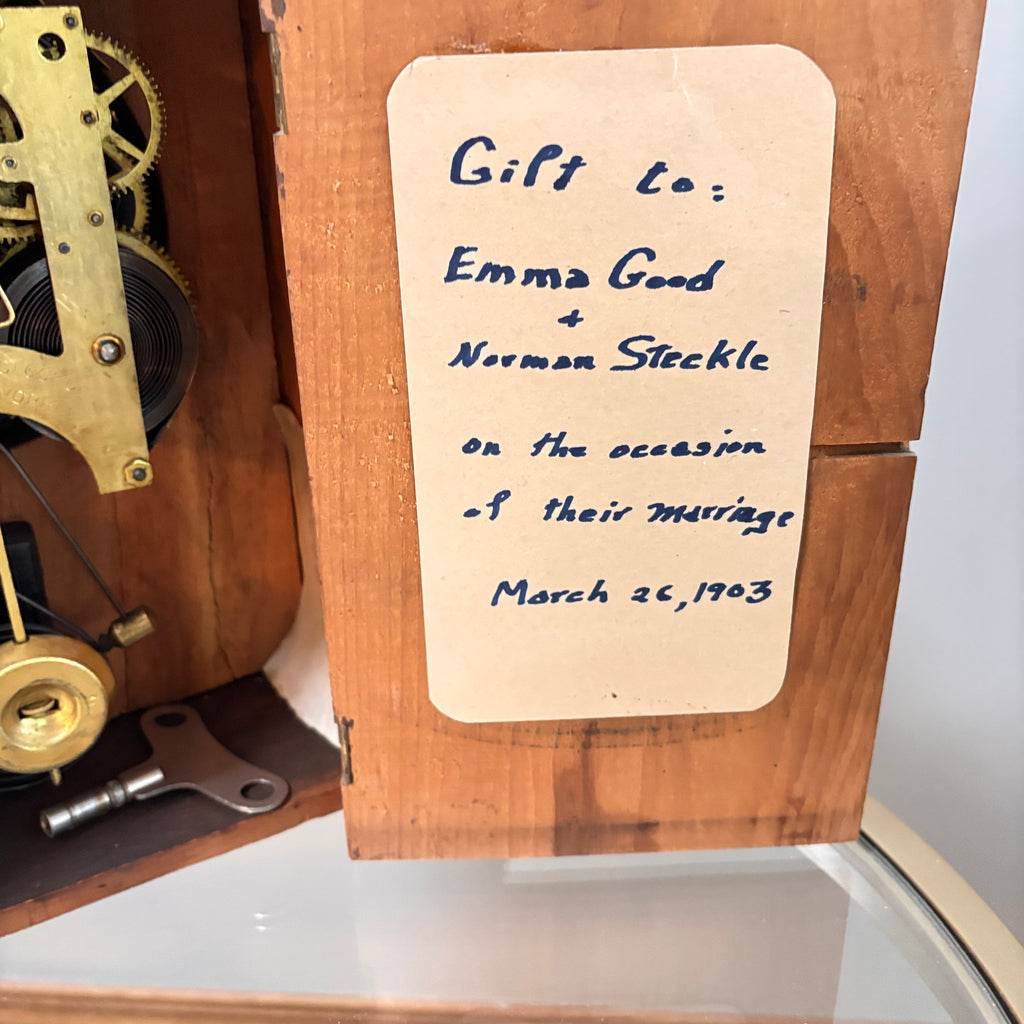 Gift to:
Emma Good
+
Norman Steckle
on the occasion
of their marriage
March 26, 1903